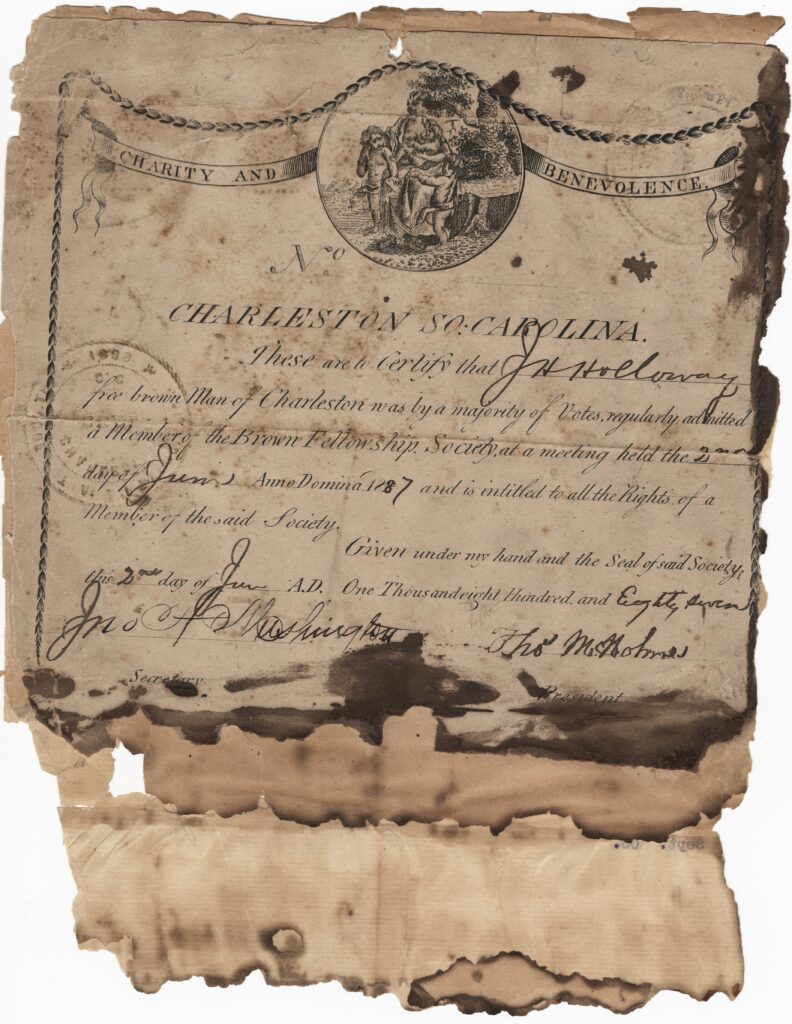 CHARITY AND
BENEVOLENCE.
No
CHARLESTON SO: CAROLINA.
These are to Certify that J H Holloway
free brown Man of Charleston was by a majority of Votes, regularly admitted
a Member of the Brown Fellowship Society, at a meeting held the 2nd
day of June Anno Domini 1887 and is intitled to all the Rights of a
Member of the said Society.
Given under my hand and the Seal of said Society,
this 2nd day of June A.D. One Thousand eight Hundred and Eighty Seven
Jno A Washington
Thos M Holmes
Secretary
President
Sept.